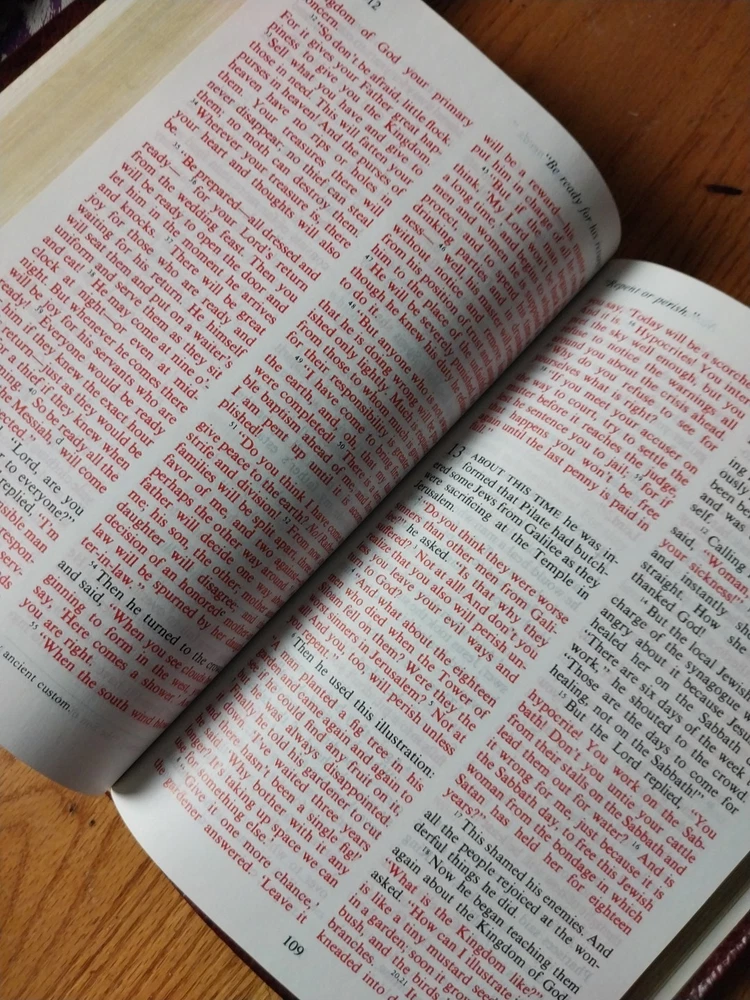 12
gdom of God your primary
concern.
32 "So don't be afraid, little flock.
For it gives your Father great hap-
piness to give you the Kingdom.
33 Sell what you have and give to
those in need. This will fatten your
purses in heaven! And the purses of
heaven have no rips or holes in
them. Your treasures there will
never disappear; no thief can steal
them; no moth can destroy them.
34 Wherever your treasure is, there
your heart and thoughts will
be.
35 "Be prepared—all dressed and
ready— 36 for your Lord's return
from the wedding feast. Then you
will be ready to open the door and
let him in the moment he arrives
and knocks. 37 There will be great
joy for those who are ready and
waiting for his return. He himself
will seat them and put on a waiter's
uniform and serve them as they sit
and eat! 38 He may come at nine o'-
clock at night—or even at mid-
night. But whenever he comes there
will be joy for his servants who are
ready!
39 "Everyone would be ready
if they knew the exact hour
return—just as they would be
a thief if they knew when
40 So be ready all the
Messiah, d will come
"Lord, are you
to everyone?"
replied, "I'm
sible man
respon
serv-
ancient custom.
"Be ready for his
will be
put him in charge of
45 "But if the
think, 'My Lord
a long time,' and begins
men and women he
protect, and to spend his time
drinking parties and in
ness— 46 well, his master
without notice and
him to the place of
47 He will be severely
though he knew his duty he
48 "But anyone who
that he is doing wrong will be
ished only lightly. Much
from those to whom much is
for their responsibility is
49 "I have come to bring
the earth, and, oh, that
ble baptism ahead of me, and
am pent up until it is
plished!
51 "Do you think I have
give peace to the earth? No! Rather,
strife and division! 52 From now
families will be split apart, three
favor of me, and two
perhaps the other way around. 53
will decide one way about
me; his son, the other; mother
daughter will disagree; and
decision of an honored e mother-
law will be spurned by her daughter-
ter-in-law."
54 Then he turned to the crowd
and said, "When you see clouds
ginning to form in the west, you
say, 'Here comes a shower.'
you are right.
55 "When the south wind
"Repent or perish."
easy, 'Today will be a scorcher.'
56 Hypocrites! You interpret
the sky well enough, but you
to notice the warnings all
around you about the crisis ahead.
57 Why do you refuse to see for
yourselves what is right?
you meet your accuser on
way to court, try to settle the
matter before it reaches the judge,
he sentence you to jail; 59 for
that happens you won't be free
again until the last penny is paid in
13 ABOUT THIS TIME he was in-
formed that Pilate had butch-
ered some Jews from Galilee as they
were sacrificing at the Temple in
Jerusalem.
2 "Do you think they were worse
sinners than other men from Gali-
lee?" he asked. "Is that why they
suffered? 3 Not at all! And don't you
that you also will perish un-
you leave your evil ways and
to God?
4 "And what about the eighteen
who died when the Tower of
Siloam fell on them? Were they the
worst sinners in Jerusalem? 5 Not at
And you, too, will perish unless
repent."
6 Then he used this illustration:
"A man planted a fig tree in his
garden and came again and again to
see if he could find any fruit on it,
but he was always disappointed.
7 Finally he told his gardener to cut
it down. 'I've waited three years
and there hasn't been a single fig!'
he said. 'Why bother with it any
longer? It's taking up space we can
use for something else.'
8 'Give it one more chance,'
the gardener answered. 'Leave it
109
ing
ously
been b
and was
self.
12 Calling
said, "Woman,
your sickness!"
and instantly she
straight. How she
thanked God!
14 But the local Jewish
charge of the synagogue
angry about it because Jesus
healed her on the Sabbath
"There are six days of the week
work," he shouted to the crowd.
"Those are the days to come for
healing, not on the Sabbath!"
15 But the Lord replied, "You
hypocrite! You work on the Sab-
bath! Don't you untie your cattle
from their stalls on the Sabbath and
lead them out for water? 16 And is
it wrong for me, just because it is
the Sabbath day, to free this Jewish
woman from the bondage in which
Satan has held her for eighteen
years?"
17 This shamed his enemies. And
all the people rejoiced at the won-
derful things he did.
18 Now he began teaching them
again about the Kingdom of God:
"What is the Kingdom like?" he
asked. "How can I illustrate
is like a tiny mustard seed
in a garden; soon it grows
bush and the birds
branches.
20,21
kneaded into